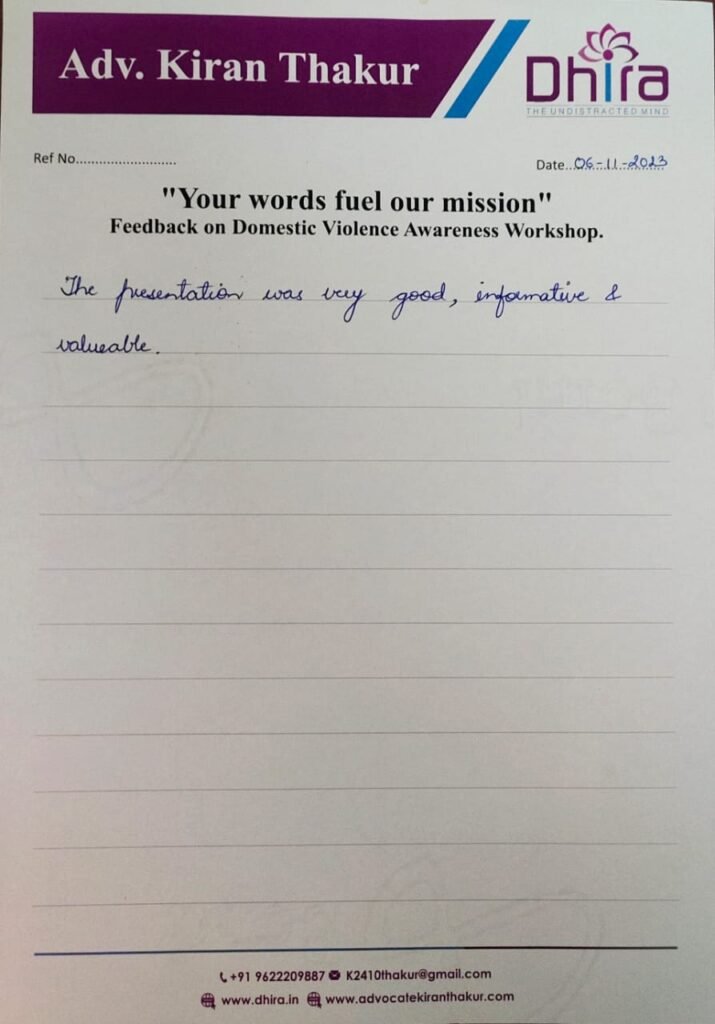 Adv. Kiran Thakur
Dhira
THE UNDISTRACTED MIND
Ref No..........................
Date...06-11-2023
"Your words fuel our mission"
Feedback on Domestic Violence Awareness Workshop.
The presentation was very good, informative &
valueable.
+91 9622209887 K2410thakur@gmail.com
www.dhira.in www.advocatekiranthakur.com